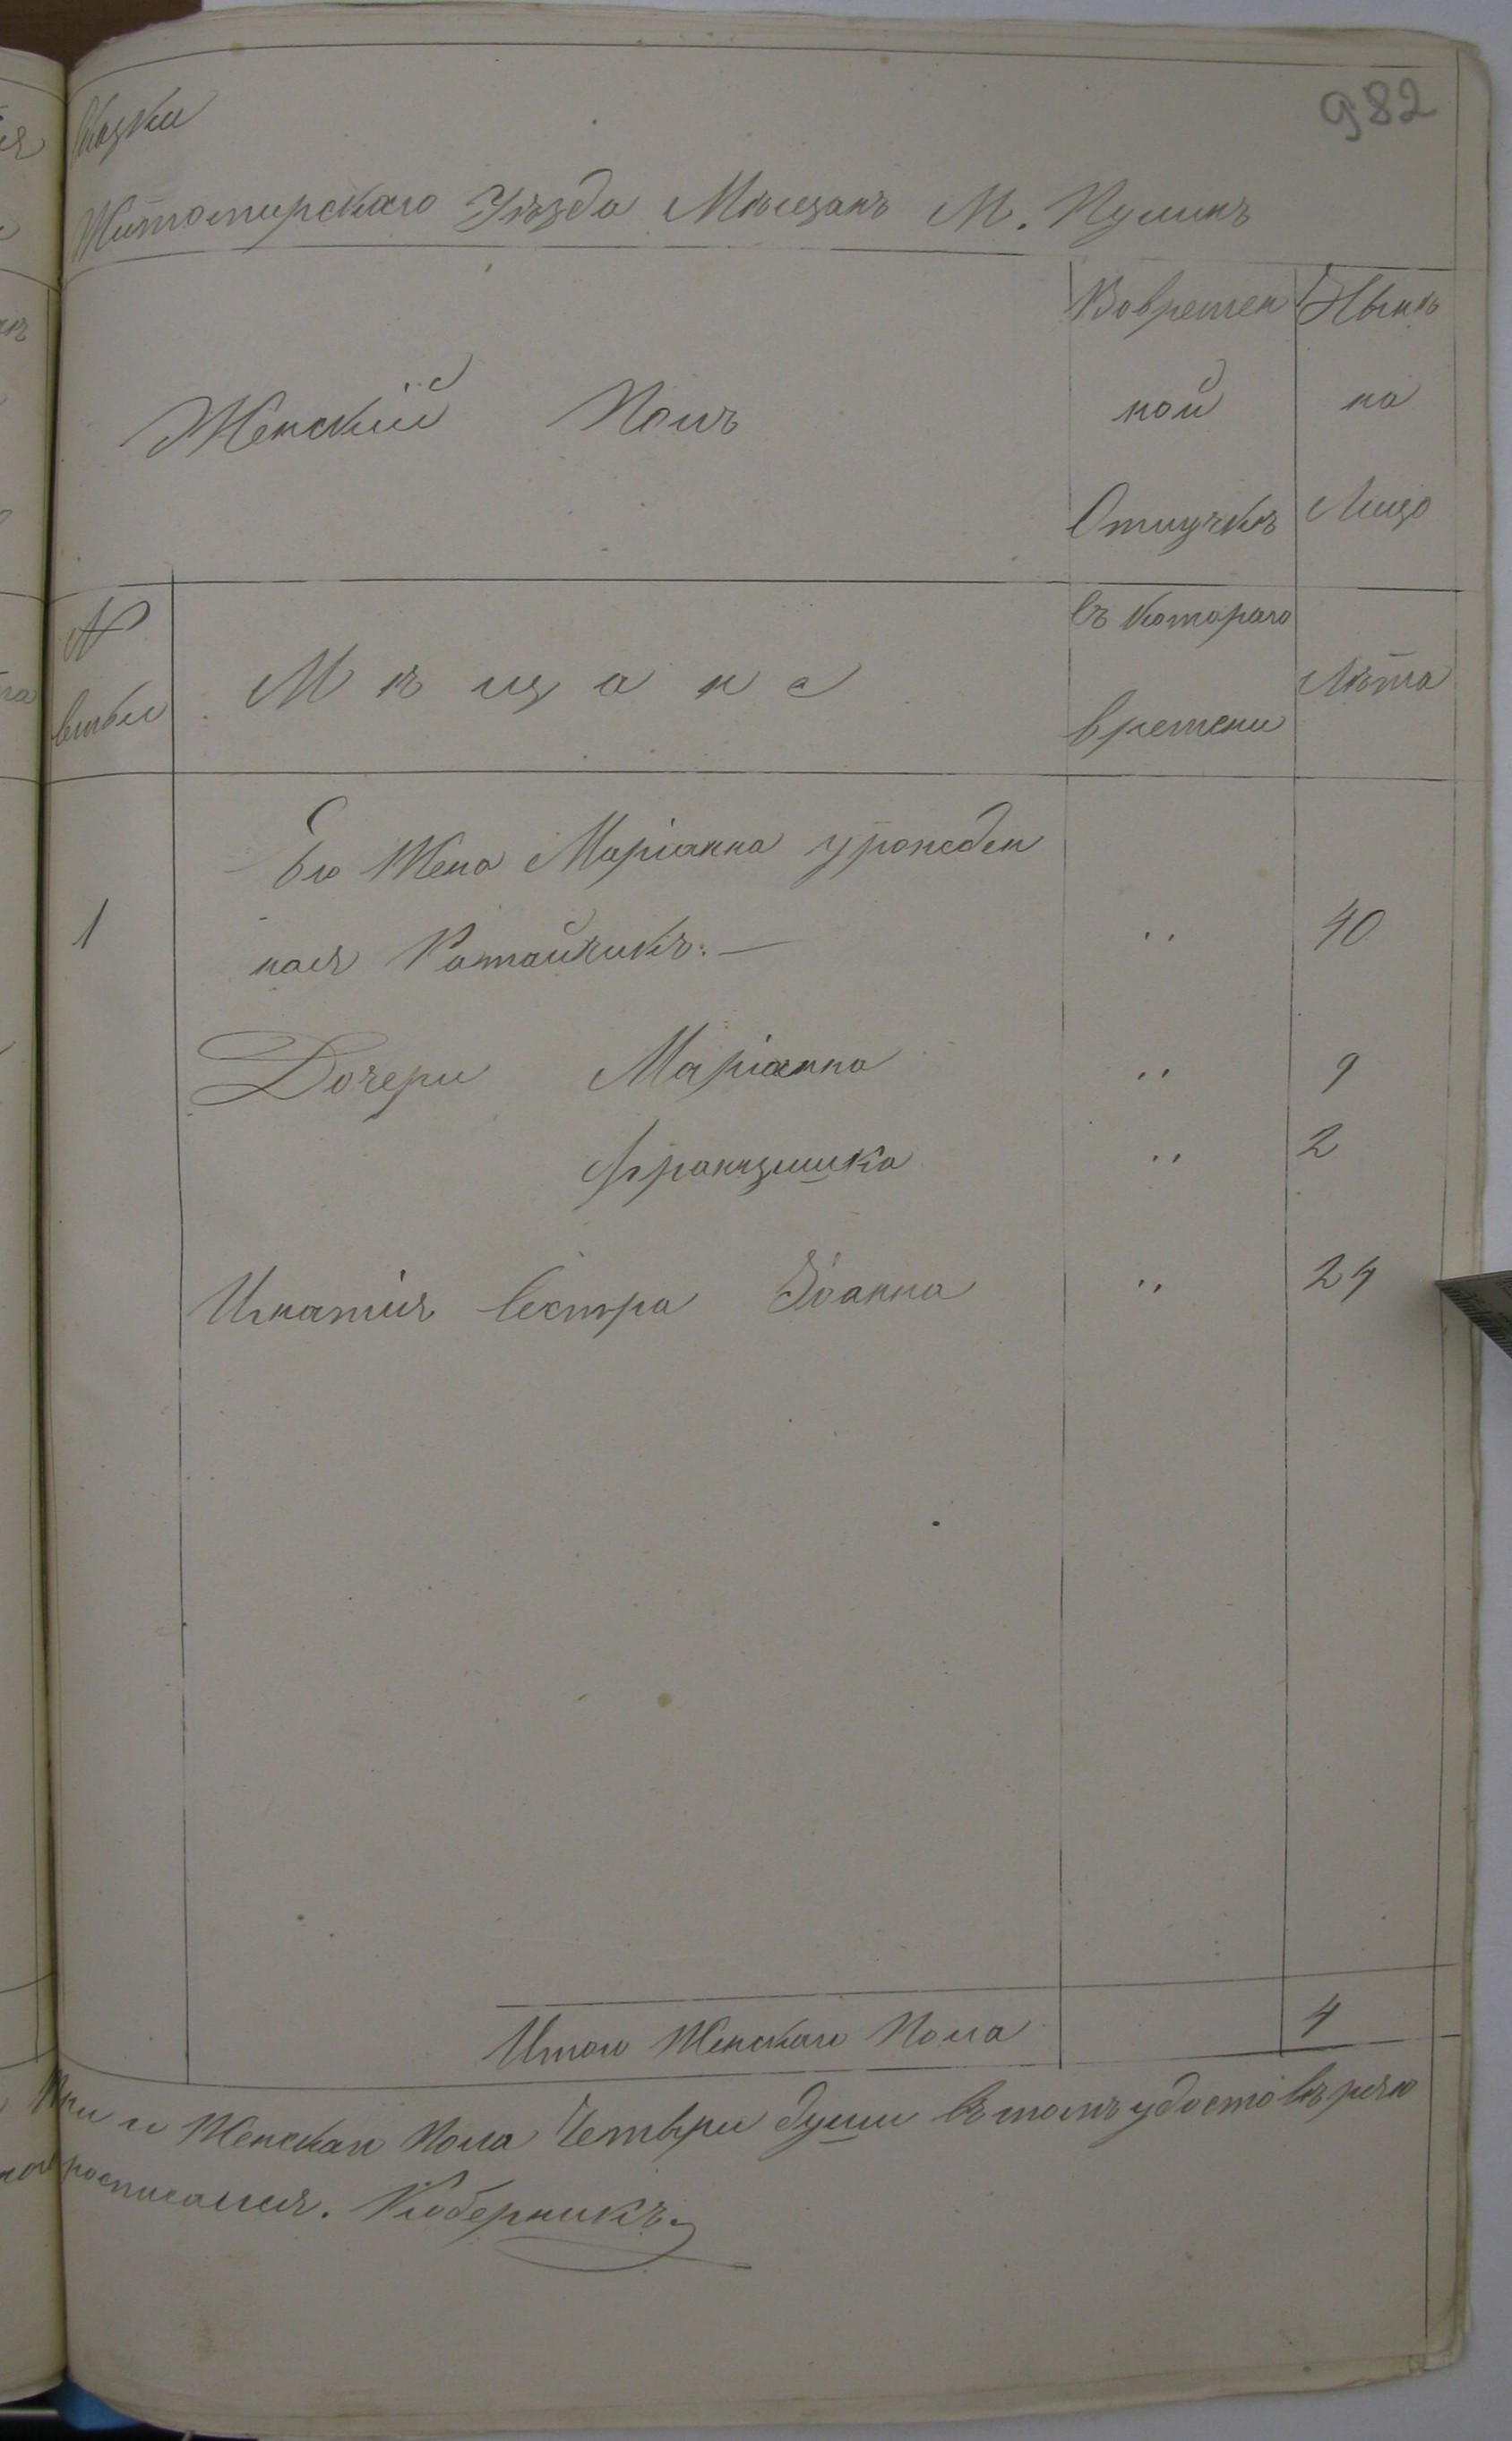 982
Сказки
Житомирскаго Уѣзда Мѣщанъ М. Пулинъ
Женскій Полъ
Во времен
ной
Отлучкѣ
Нынѣ
на
Лицо
№
семьи
Мѣщане
Съ котораго
времени
Лѣта
1 Его Жена Маріанна урожден
ная Ратайчикъ. — " 40
Дочери Маріанна " 9
Францишка " 2
Игнатія Сестра Іоанна " 24
Итого Женскаго Пола 4
и Женскаго Пола Четыри души въ томъ удостовѣряю
росписался. Кюберникъ